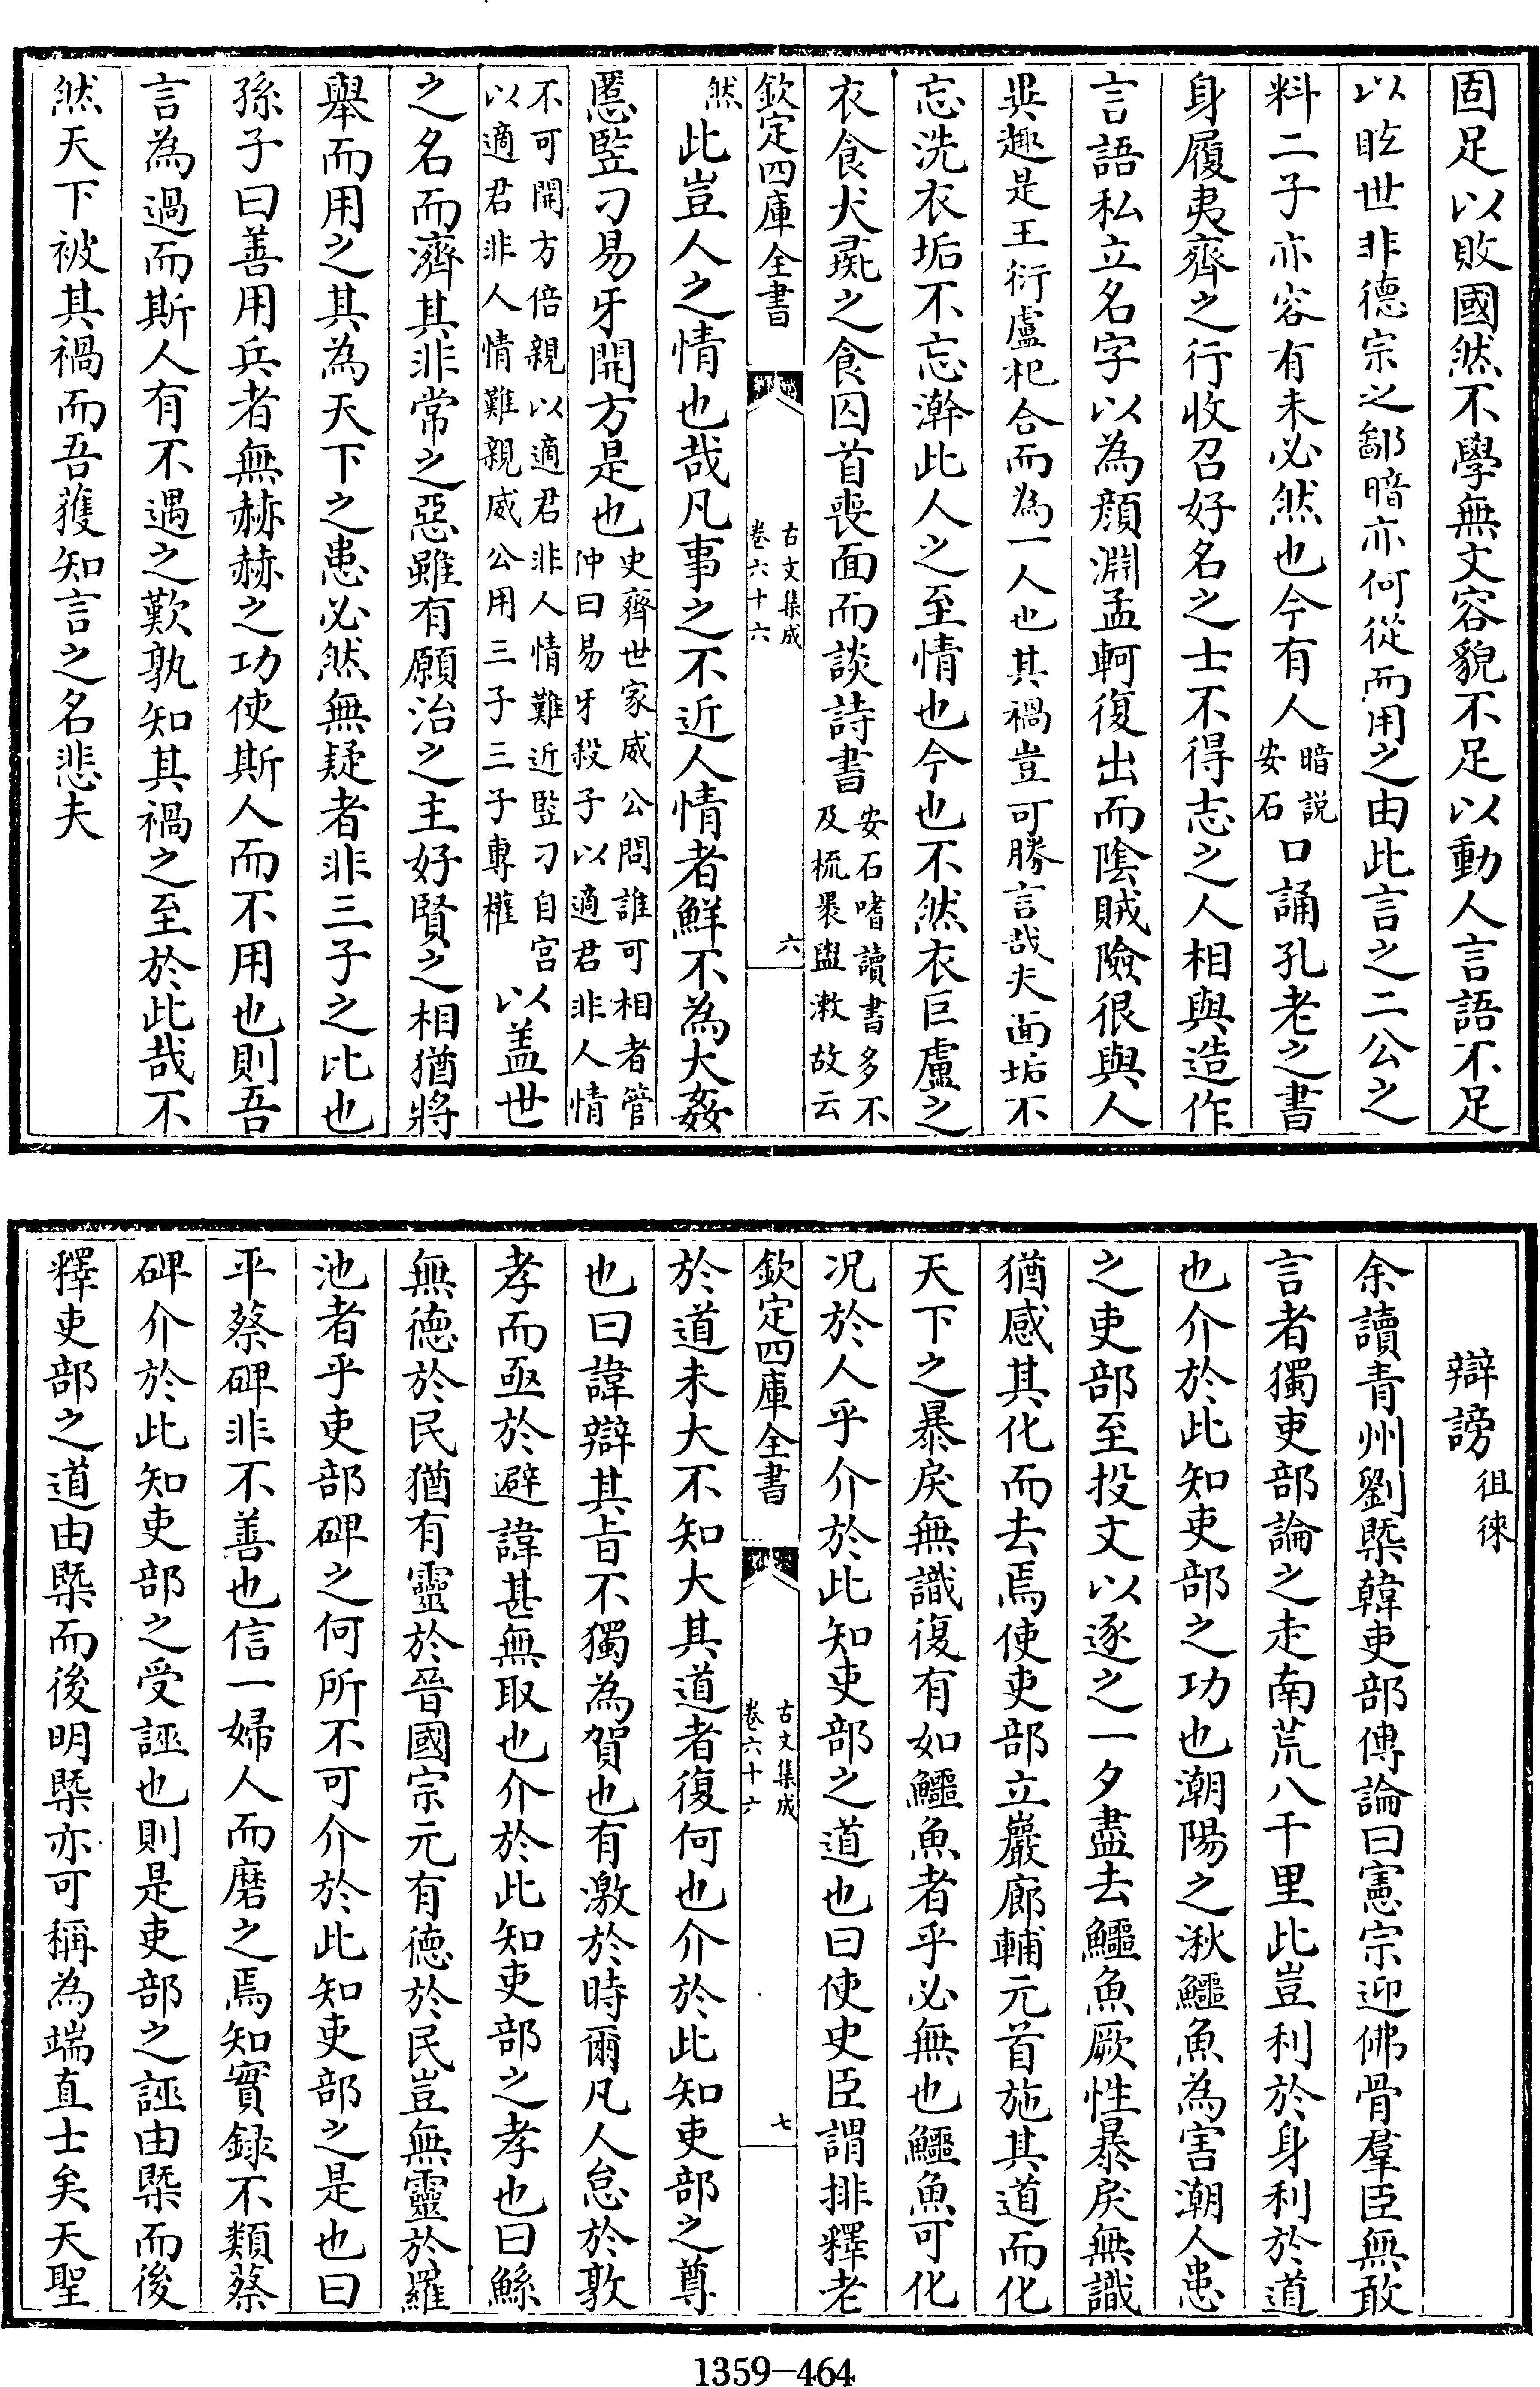 固足以敗國然不學無文容貌不足以動人言語不足
以眩世非德宗之鄙暗亦何從而用之由此言之二公之
料二子亦容有未必然也今有人暗説安石口誦孔老之書
身履夷齊之行收召好名之士不得志之人相與造作
言語私立名字以為顔淵孟軻復出而陰賊險很與人
異趣是王衍盧杞合而為一人也其禍豈可勝言哉夫面垢不
忘洗衣垢不忘澣此人之至情也今也不然衣巨盧之
衣食犬彘之食囚首喪面而談詩書安石嗜讀書多不及梳裹盥漱故云
欽定四庫全書
古文集成
卷六十六
六
然此豈人之情也哉凡事之不近人情者鮮不為大姦
慝豎刁易牙開方是也史齊世家威公問誰可相者管仲曰易牙殺子以適君非人情
不可開方倍親以適君非人情難近豎刁自宫以適君非人情難親威公用三子三子專權以盖世
之名而濟其非常之惡雖有願治之主好賢之相猶將
舉而用之其為天下之患必然無疑者非三子之比也
孫子曰善用兵者無赫赫之功使斯人而不用也則吾
言為過而斯人有不遇之歎孰知其禍之至於此哉不
然天下被其禍而吾獲知言之名悲夫
辯謗徂徠
余讀青州劉槩韓吏部傳論曰憲宗迎佛骨羣臣無敢
言者獨吏部論之走南荒八千里此豈利於身利於道
也介於此知吏部之功也潮陽之湫鱷魚為害潮人患
之吏部至投文以逐之一夕盡去鱷魚厥性暴戾無識
猶感其化而去焉使吏部立巖廊輔元首施其道而化
天下之暴戾無識復有如鱷魚者乎必無也鱷魚可化
况於人乎介於此知吏部之道也曰使史臣謂排釋老
欽定四庫全書
古文集成
卷六十六
七
於道未大不知大其道者復何也介於此知吏部之尊
也曰諱辯其㫖不獨為賀也有激於時爾凡人怠於敦
孝而亟於避諱甚無取也介於此知吏部之孝也曰鯀
無德於民猶有靈於晉國宗元有德於民豈無靈於羅
池者乎吏部碑之何所不可介於此知吏部之是也曰
平蔡碑非不善也信一婦人而磨之焉知實録不類蔡
碑介於此知吏部之受誣也則是吏部之誣由槩而後
釋吏部之道由槩而後明槩亦可稱為端直士矣天聖
1359-464